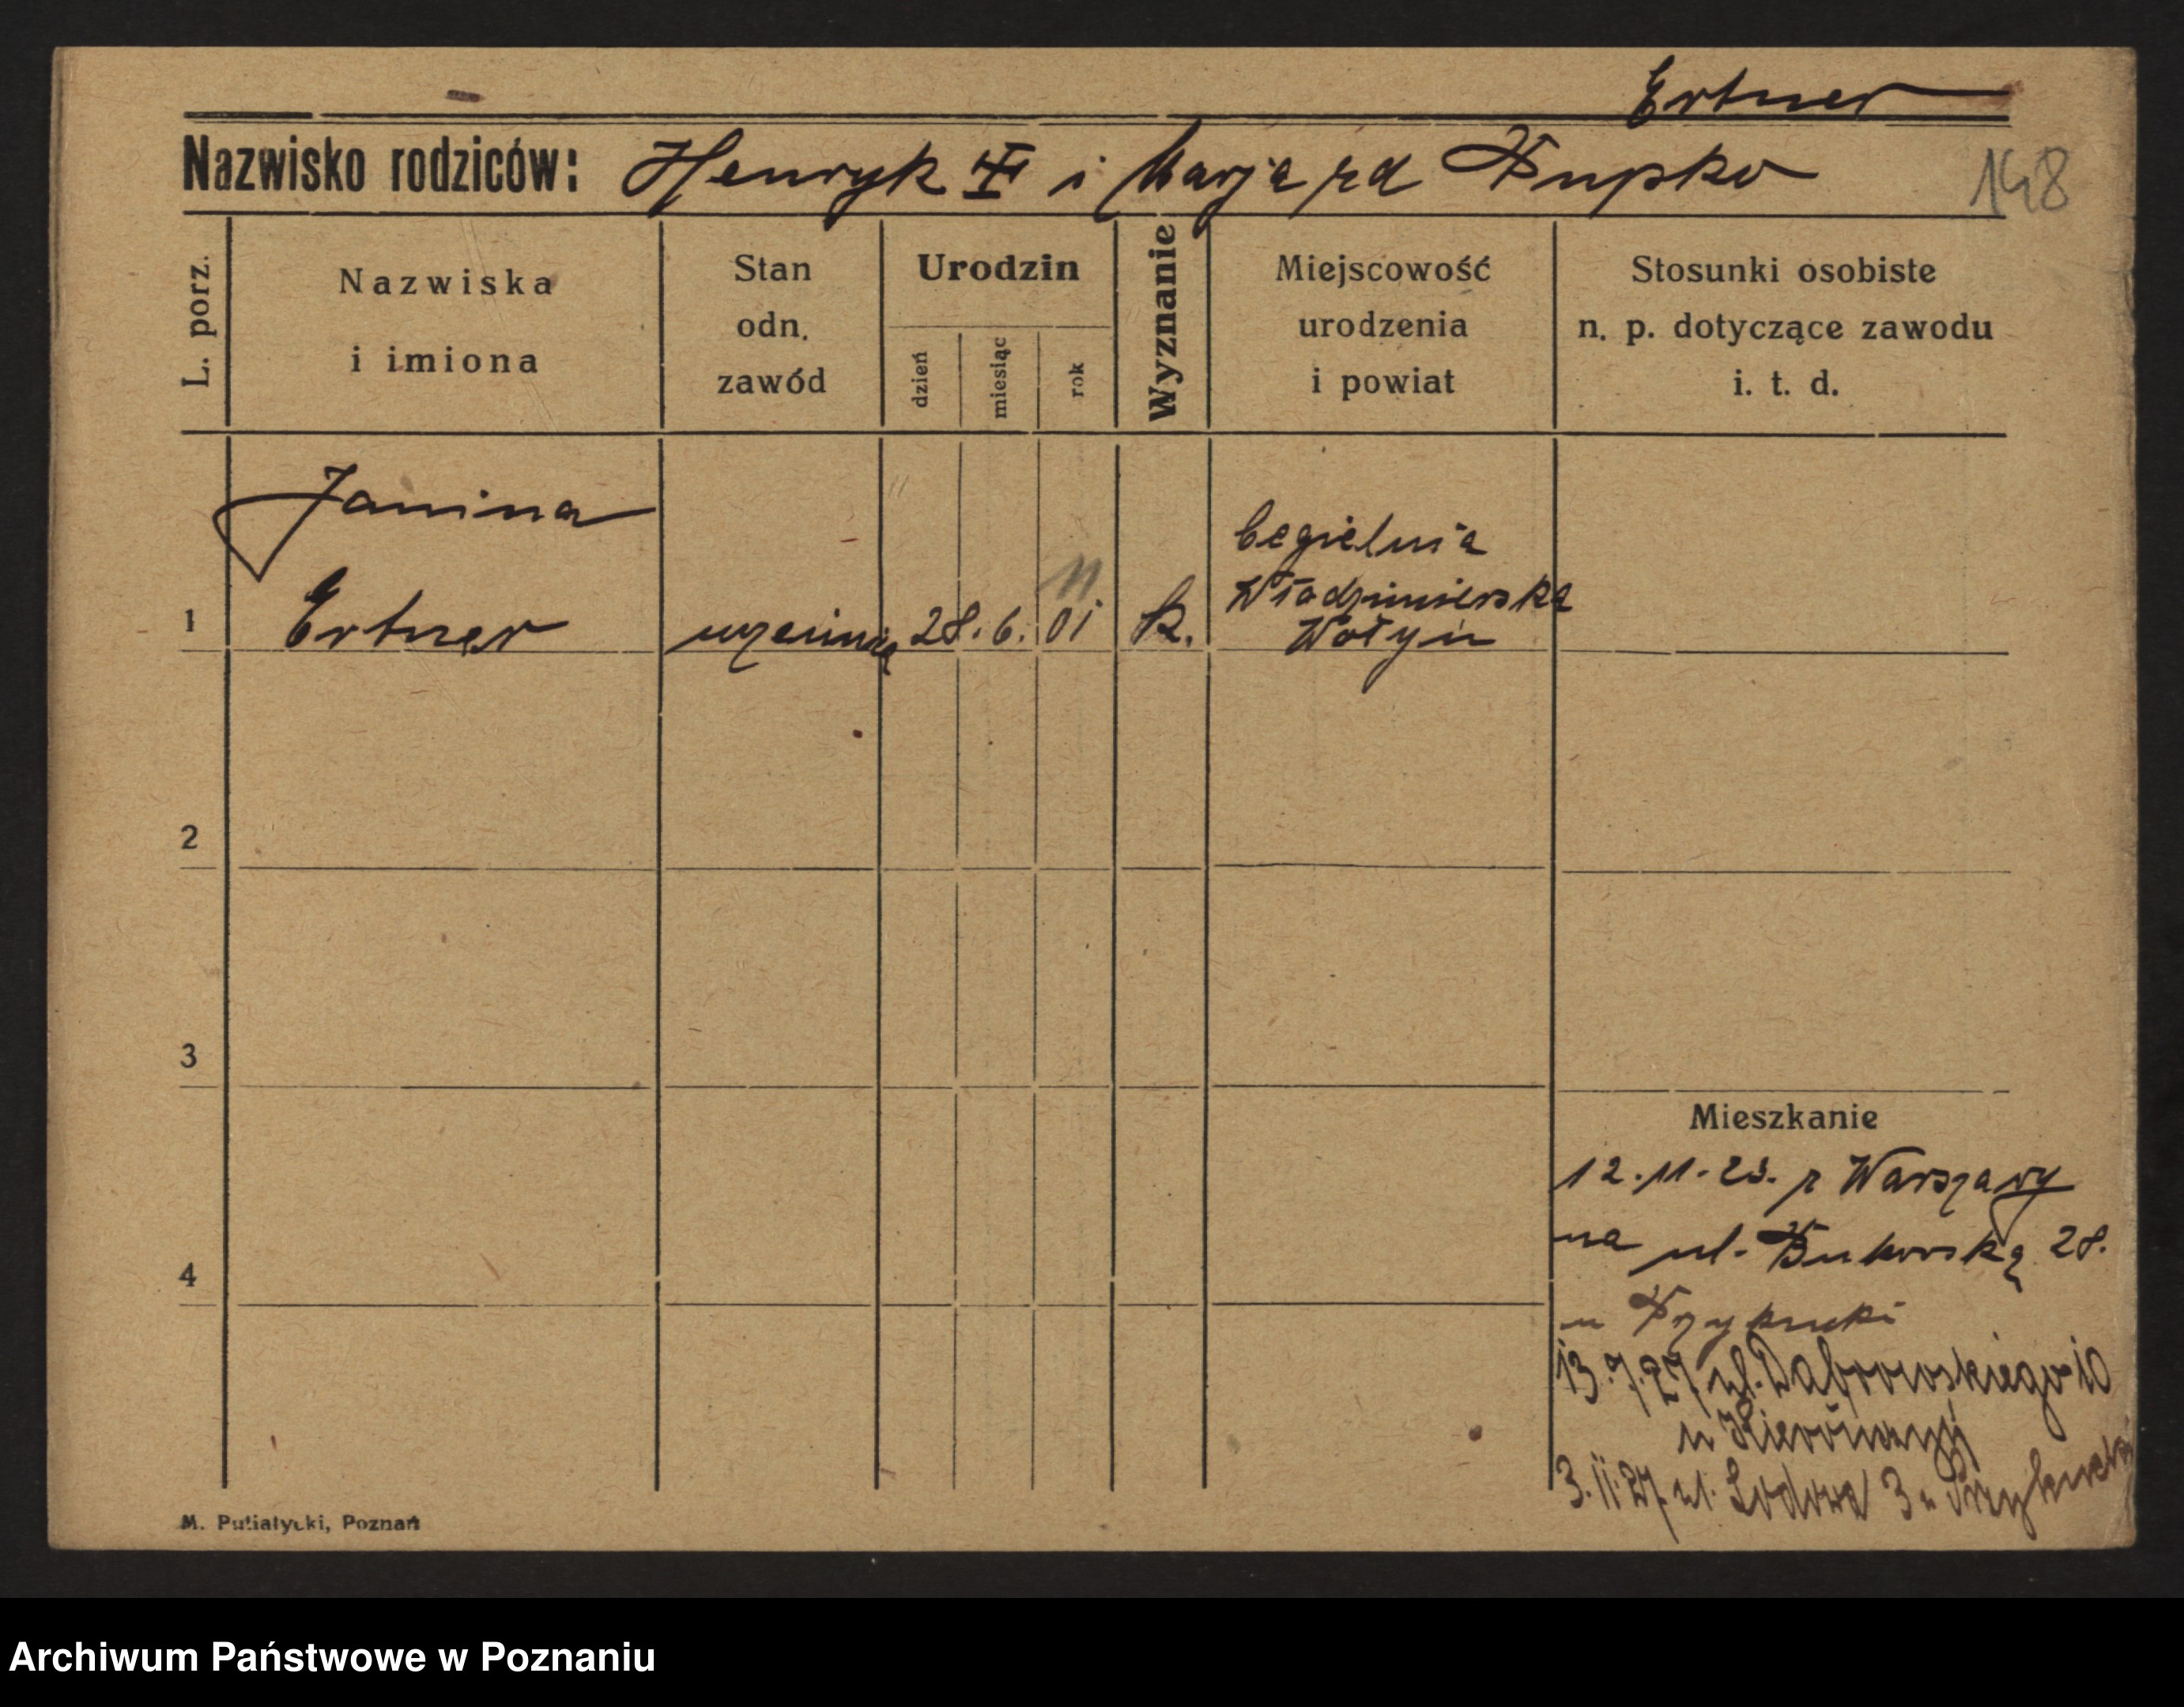 Ertner
Nazwisko rodziców: Henryk i Marja zd Pupko
148
L. porz.
Nazwiska
i imiona
Stan
odn.
zawód
Urodzin
dzień
miesiąc
rok
Wyznanie
Miejscowość
urodzenia
i powiat
Stosunki osobiste
n. p. dotyczące zawodu
i. t. d.
Janina
1 Ertner
uczennica
28. 6. 01
11
k.
Cegielnia
Włodzimierska
Wołyń
2
3
4
Mieszkanie
12.11.23. z Warszawy
na ul. Bukowską 28.
u
13.7.27. ul. Dąbrowskiego 10
u
3.11.27. ul. Lodowa 3 u
M. Putiatycki, Poznań
Archiwum Państwowe w Poznaniu